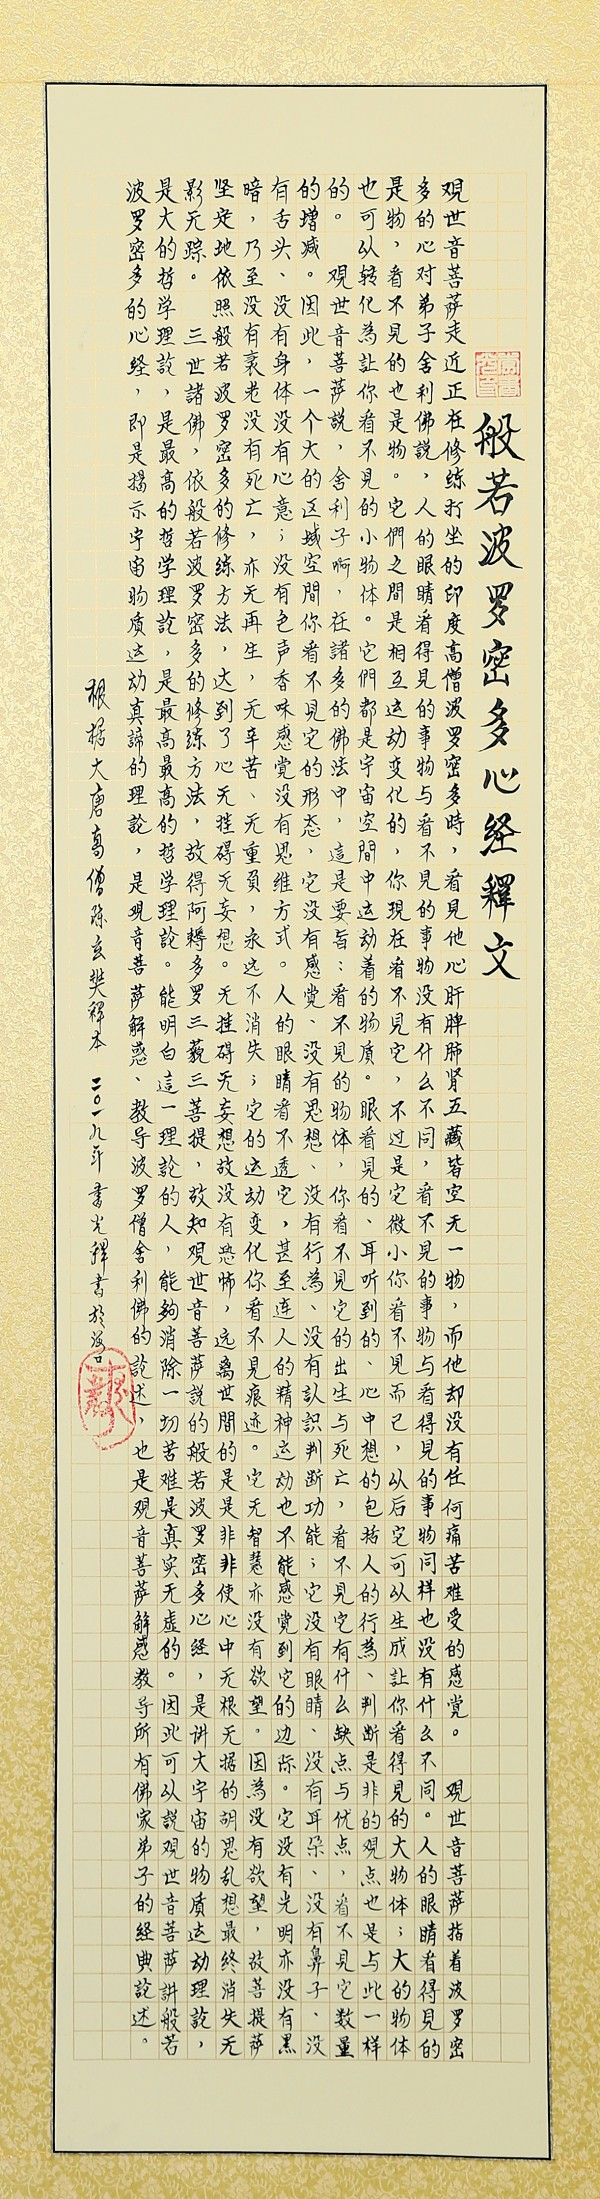 般若波罗密多心经釋文
观世音菩萨走近正在修练打坐的印度高僧波罗密多時，看見他心肝脾肺肾五藏皆空无一物，而他却没有任何痛苦难受的感觉。 观世音菩萨指着波罗密
多的心对弟子舍利佛説，人的眼睛看得見的事物与看不見的事物没有什么不同，看不見的事物与看得見的事物同样也没有什么不同。人的眼睛看得見的
是物，看不見的也是物。它們之間是相互运动变化的，你現在看不見它，不过是它微小你看不見而已，从后它可以生成让你看得見的大物体；大的物体
也可以转化為让你看不見的小物体。它們都是宇宙空間中运动着的物质。眼看見的、耳听到的、心中想的包括人的行為、判断是非的观点也是与此一样
的。 观世音菩萨説，舍利子啊，在諸多的佛法中，這是要旨：看不見的物体，你看不見它的出生与死亡，看不見它有什么缺点与优点，看不見它数量
的增减。因此，一个大的区域空間你看不見它的形态，它没有感觉、没有思想、没有行為、没有认識判断功能；它没有眼睛、没有耳朵、没有鼻子、没
有舌头、没有身体没有心意；没有色声香味感觉没有思维方式。人的眼睛看不透它，甚至连人的精神运动也不能感觉到它的边际。它没有光明亦没有黑
暗，乃至没有衰老没有死亡，亦无再生，无辛苦、无重負，永远不消失；它的运动变化你看不見痕迹。它无智慧亦没有欲望。因為没有欲望，故菩提萨
坚定地依照般若波罗密多的修练方法，达到了心无挂碍无妄想。无挂碍无妄想故没有恐怖，远离世間的是是非非使心中无根无据的胡思乱想最终消失无
影无踪。 三世諸佛，依般若波罗密多的修练方法，故得阿耨多罗三藐三菩提，故知观世音菩萨説的般若波罗密多心经，是讲大宇宙的物质运动理論，
是大的哲学理論，是最高的哲学理論，是最高最高的哲学理論。能明白這一理論的人，能夠消除一切苦难是真实无虚的。因此可以説观世音菩萨讲般若
波罗密多的心经，即是揭示宇宙物质运动真諦的理論，是观音菩萨解惑、教导波罗僧舍利佛的論述，也是观音菩萨解惑教导所有佛家弟子的经典論述。
根据大唐高僧陈玄奘释本 二〇一九年 書於汉口